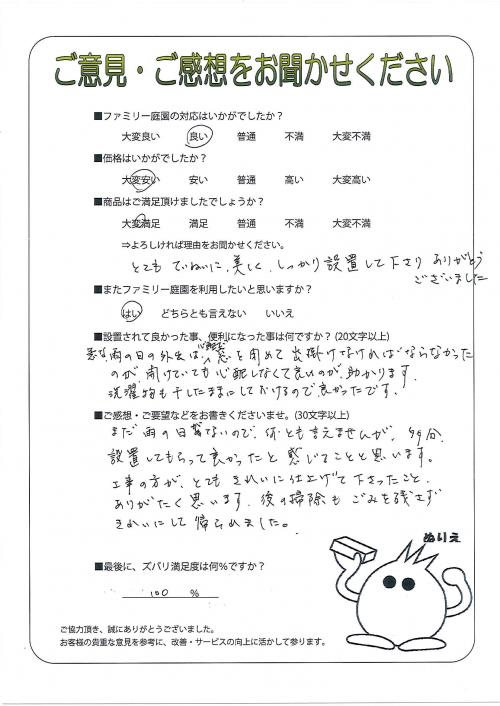 ご意見・ご感想をお聞かせください
■ファミリー庭園の対応はいかがでしたか？
大変良い 良い 普通 不満 大変不満
■価格はいかがでしたか？
大変安い 安い 普通 高い 大変高い
■商品はご満足頂けましたでしょうか？
大変満足 満足 普通 不満 大変不満
⇒よろしければ理由をお聞かせください。
とても ていねいに、美しく、しっかり設置して下さり ありがとう
ございました
■またファミリー庭園を利用したいと思いますか？
はい どちらとも言えない いいえ
■設置されて良かった事、便利になった事は何ですか？(20文字以上)
雨の日の外出は 窓を閉めて出掛けなければならなかった
のが、開けていても心配しなくて良いのが、助かります。
洗濯物も干したままにしておけるので良かったです。
■ご感想・ご要望などをお書きくださいませ。(30文字以上)
まだ雨の日がないので、何とも言えませんが、多分、
設置してもらって良かったと感じることと思います。
工事の方が、とてもきれいに仕上げて下さったこと、
ありがたく思います。後の掃除もごみを残さず
きれいにして帰られました。
ぬりえ
■最後に、ズバリ満足度は何％ですか？
100 ％
ご協力頂き、誠にありがとうございました。
お客様の貴重な意見を参考に、改善・サービスの向上に活かして参ります。